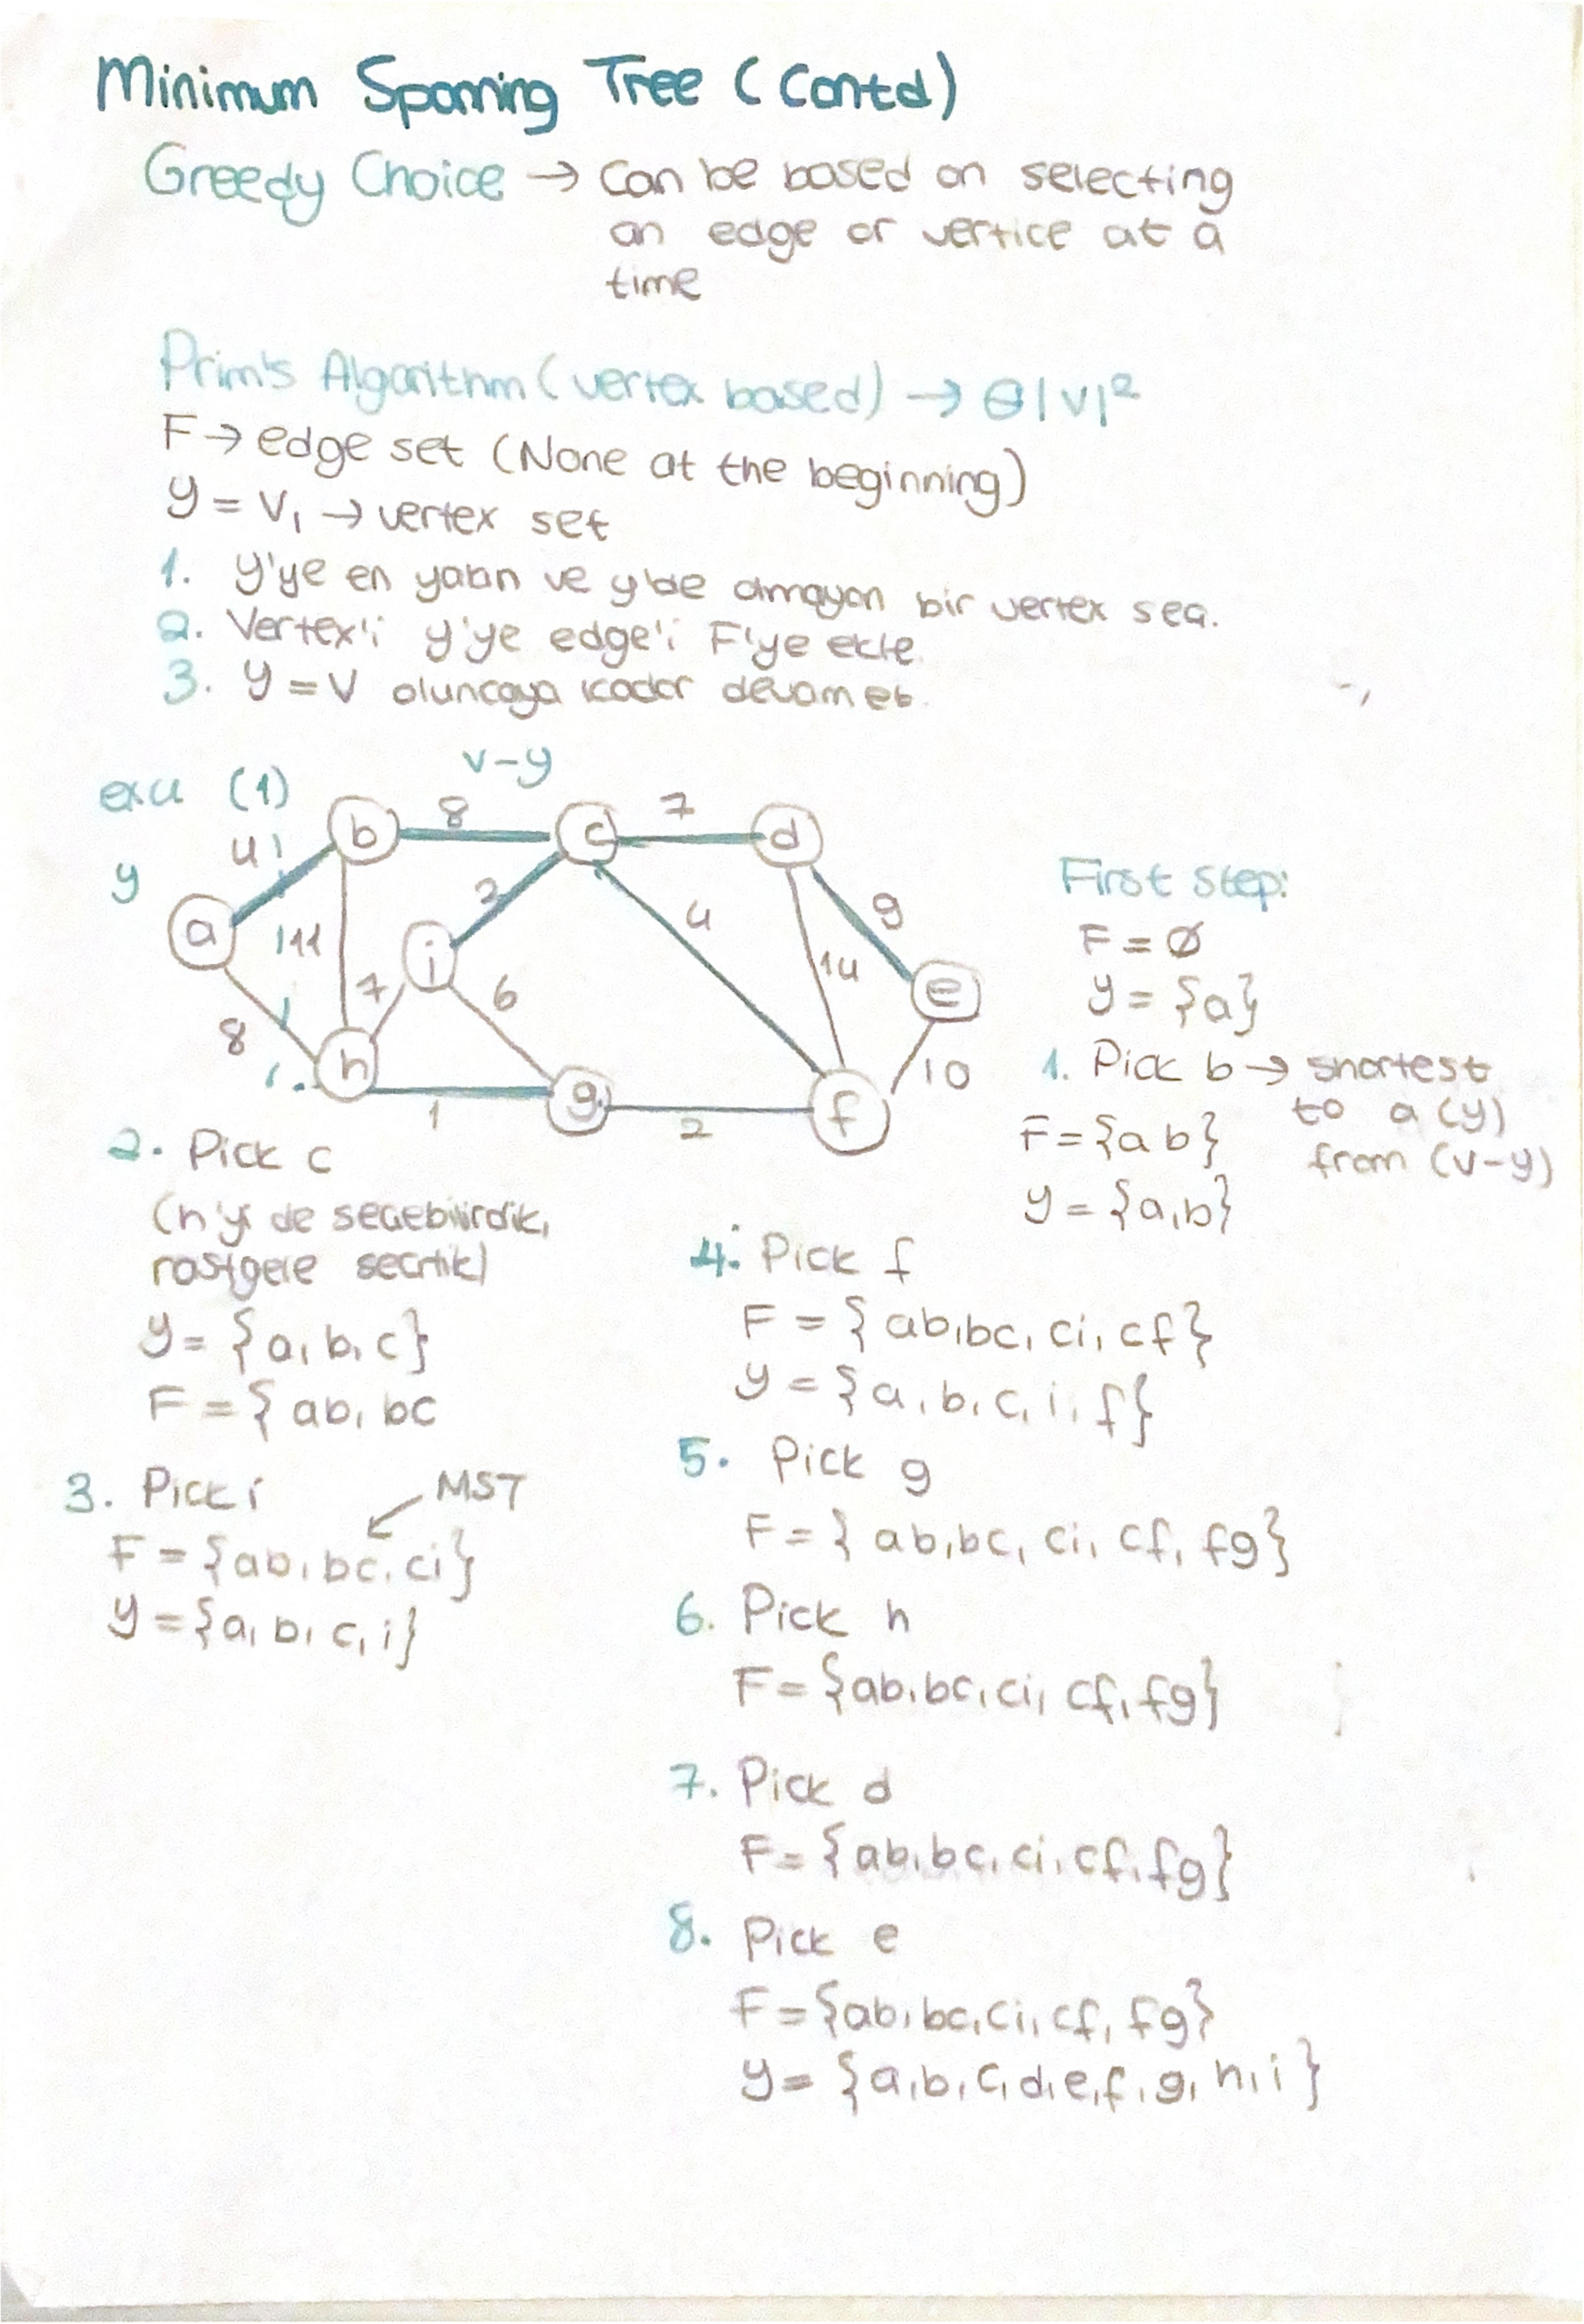 Minimum Spanning Tree (Contd)
Greedy Choice → Can be based on selecting
an edge or vertice at a
time
Prim's Algorithm (vertex based) → θ|V|²
F → edge set (None at the beginning)
y = V₁ → vertex set
1. y'ye en yakın ve y'de olmayan bir vertex seç.
2. Vertex'i y'ye edge'i F'ye ekle.
3. y = V oluncaya kadar devam et.
(1)
v-y
y
b 8 c 7 d
4
a
11
2
i
4
9
14
e
7
6
8
h
1
g
2
f
10
First step:
F = ∅
y = {a}
1. Pick b → shortest
to a (y)
from (v-y)
F = {ab}
y = {a,b}
2. Pick c
(h'yi de seçebilirdik,
rastgele seçtik)
y = {a, b, c}
F = { ab, bc
3. Pick i
MST
F = {ab, bc, ci}
y = {a, b, c, i}
4. Pick f
F = { ab, bc, ci, cf}
y = {a, b, c, i, f}
5. Pick g
F = { ab, bc, ci, cf, fg}
6. Pick h
F = {ab, bc, ci, cf, fg}
7. Pick d
F = {ab, bc, ci, cf, fg}
8. Pick e
F = {ab, bc, ci, cf, fg}
y = {a, b, c, d, e, f, g, h, i}